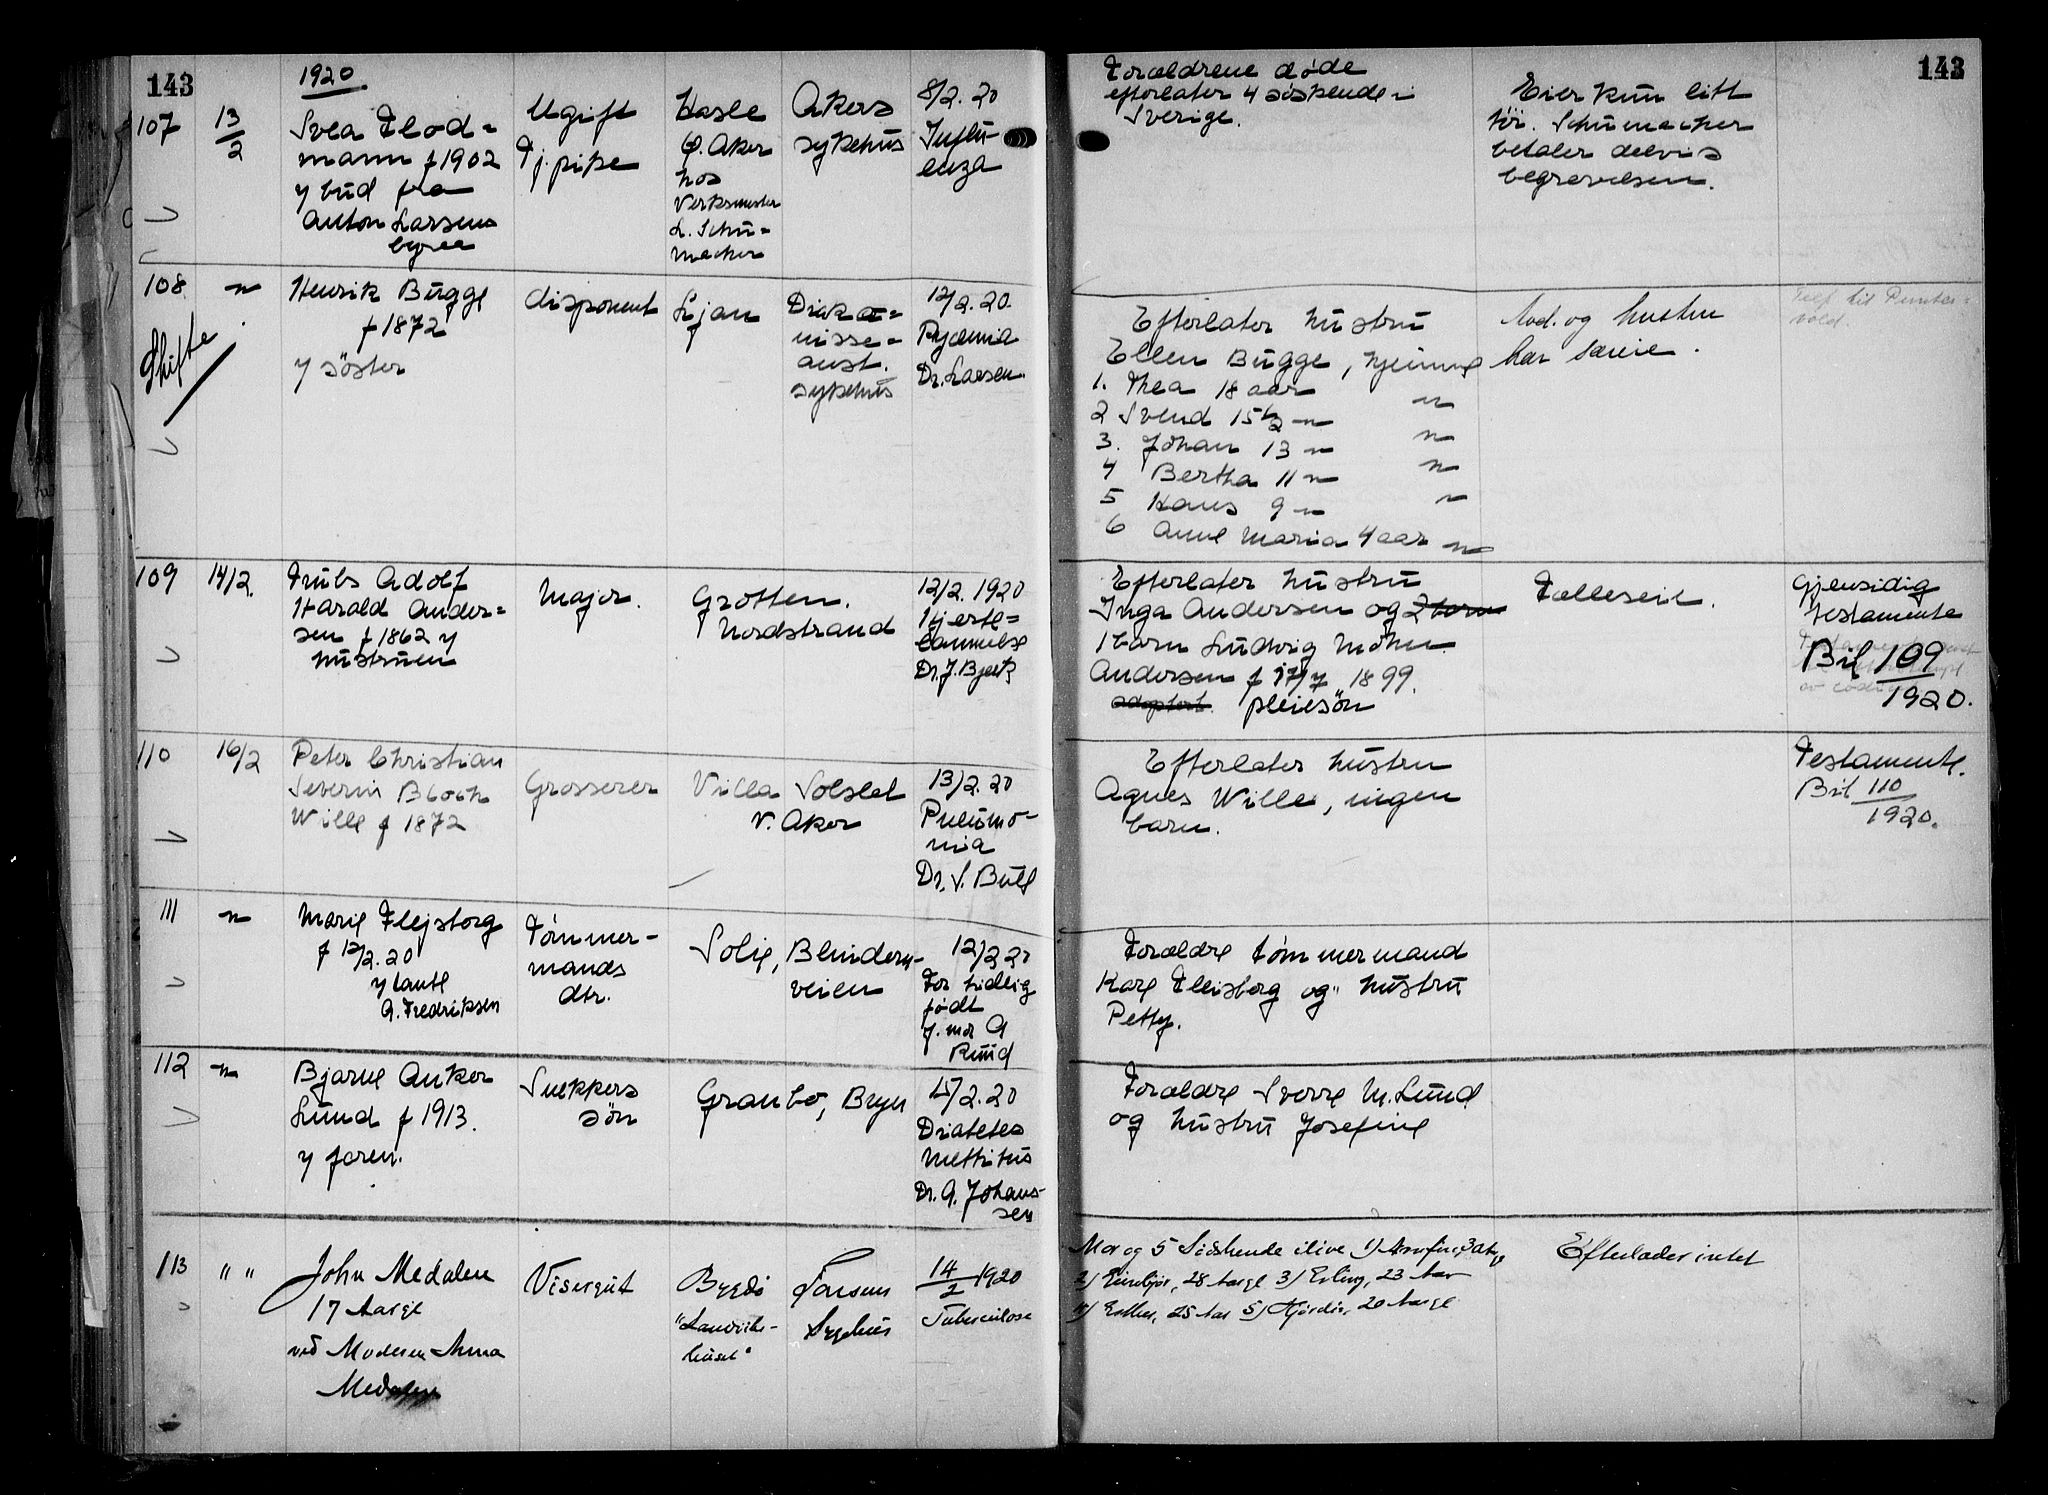 143
1920
107
13/2
Svea Flod=
mann f 1902
v bud fra
Anton Larsens
byraa
Ugift
Tj. pike
Hasle
Ø. Aker
hos
Verksmester
L. Schu=
macher
Akers
sykehus
8/2. 20
Influ-
enza
Forældrene døde
efterlater 4 søskende i
Sverige.
Eier kun litt
töi. Schumacher
betaler delvis
begravelsen.
143
108
"
Skifte
Henrik Bugge
f 1872
v söster
disponent
Ljan
Diako=
nisse=
anst.
sykehus
12/2. 20.
Pyæmia
Dr. Larsen
Efterlater hustru
Ellen Bugge, hjemme
1. Thea 18 aar "
2 Svend 15 1/2 " "
3. Johan 13 " "
4 Bertha 11 " "
5 Hans 9 " "
6 Anne Maria 4 aar "
Avd. og hustru
har særeie.
109
14/2.
Truls Adolf
Harald Ander=
sen f 1862 v
hustruen
Major.
Grotten.
Nordstrand
12/2. 1920
Hjerte=
lammelse
Dr. J. Bjerk
Efterlater hustru
Inga Andersen og 2 barn
1 barn Ludvig Mohn
Andersen f 17/7 1899.
adoptert. pleiesön
Fælleseie.
Gjensidig
testamente
Bil 109
1920.
110
16/2
Peter Christian
Severin Bloch
Wille f 1872
Grosserer
Villa Solslet
V. Aker
13/2. 20
Pneumo-
nia
Dr. S. Bull
Efterlater hustru
Agnes Wille, ingen
barn.
Testamente.
Bil 110
1920.
111
"
Marie Flejsborg
f 12/2. 20
v tante
G. Fredriksen
Tømmer-
mands
dtr.
Solie, Blindern-
veien
12/2 20
For tidlig
født
j. mor G
Ruud
Forældre tømmermand
Karl Fleisborg og hustru
Petty.
112
"
Bjarne Anker
Lund f 1913.
v faren.
Snekkers
sön
Granbo, Bryn
15/2. 20
Diabetes
mellitus
Dr. G. Johans-
sen
Forældre Sverre M. Lund
og hustru Josefine
113
" "
John Medalen
17 Aarge
ved Moderen Anna
Medalen
Visergut
Bygdö
Larsens
Sygehus
14/2 1920
Tuberculose
Mor og 5 Södskende ilive 1)
2) 28 Aarge 3) Erling, 23 Aar
4) Esther, 25 Aar 5) Hjördis, 20 Aarge
Efterlader intet